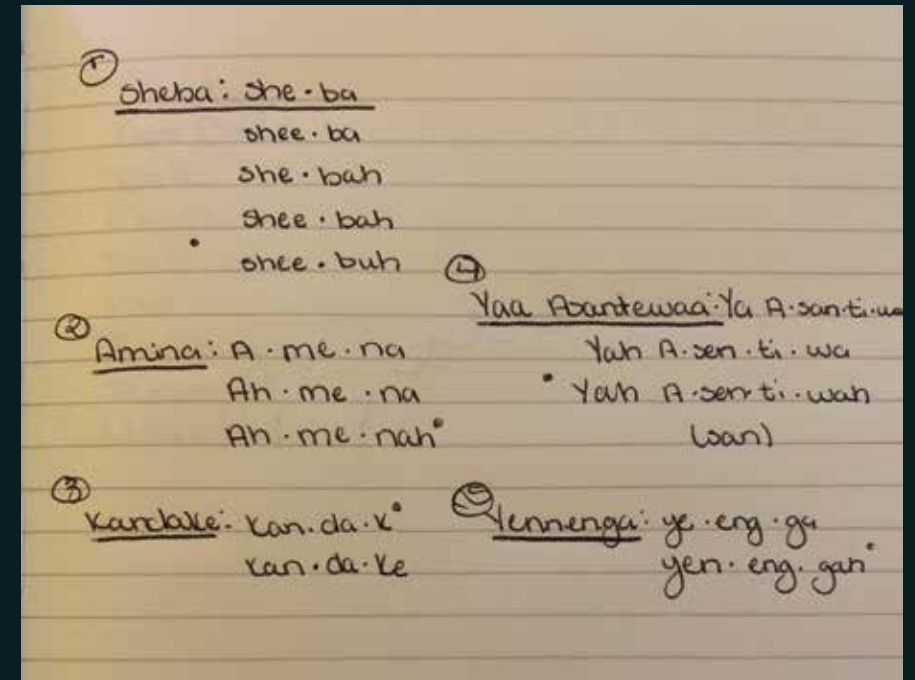 ①
Sheba: she·ba
shee·ba
she·bah
shee·bah
• shee·buh
②
Amina: A·me·na
Ah·me·na
Ah·me·nah•
③
Kandake: kan·da·k•
kan·da·ke
④
Yaa Asantewaa: Ya A·san·ti·wa
Yah A·sen·ti·wa
• Yah A·sen·ti·wah
(san)
⑤
Yennenga: ye·eng·ga
yen·eng·gah•